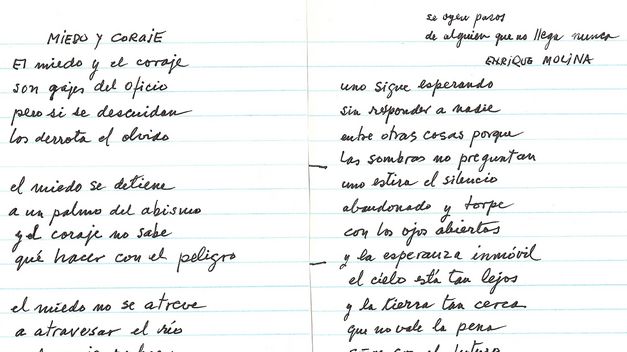 MIEDO Y CORAJE
El miedo y el coraje
son gajes del oficio
pero si se descuidan
los derrota el olvido
el miedo se detiene
a un palmo del abismo
y el coraje no sabe
qué hacer con el peligro
el miedo no se atreve
a atravesar el río
se oyen pasos
de alguien que no llega nunca
ENRIQUE MOLINA
uno sigue esperando
sin responder a nadie
entre otras cosas porque
las sombras no preguntan
uno estira el silencio
abandonado y torpe
con los ojos abiertos
y la esperanza inmóvil
el cielo está tan lejos
y la tierra tan cerca
que no vale la pena